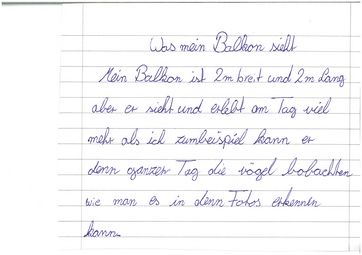 Was mein Balkon sieht
Mein Balkon ist 2m breit und 2m Lang
aber er sieht und erlebt am Tag viel
mehr als ich zumbeispiel kann er
denn ganzen Tag die vögel bobachten
wie man es in denn Fotos erkennen
kann.